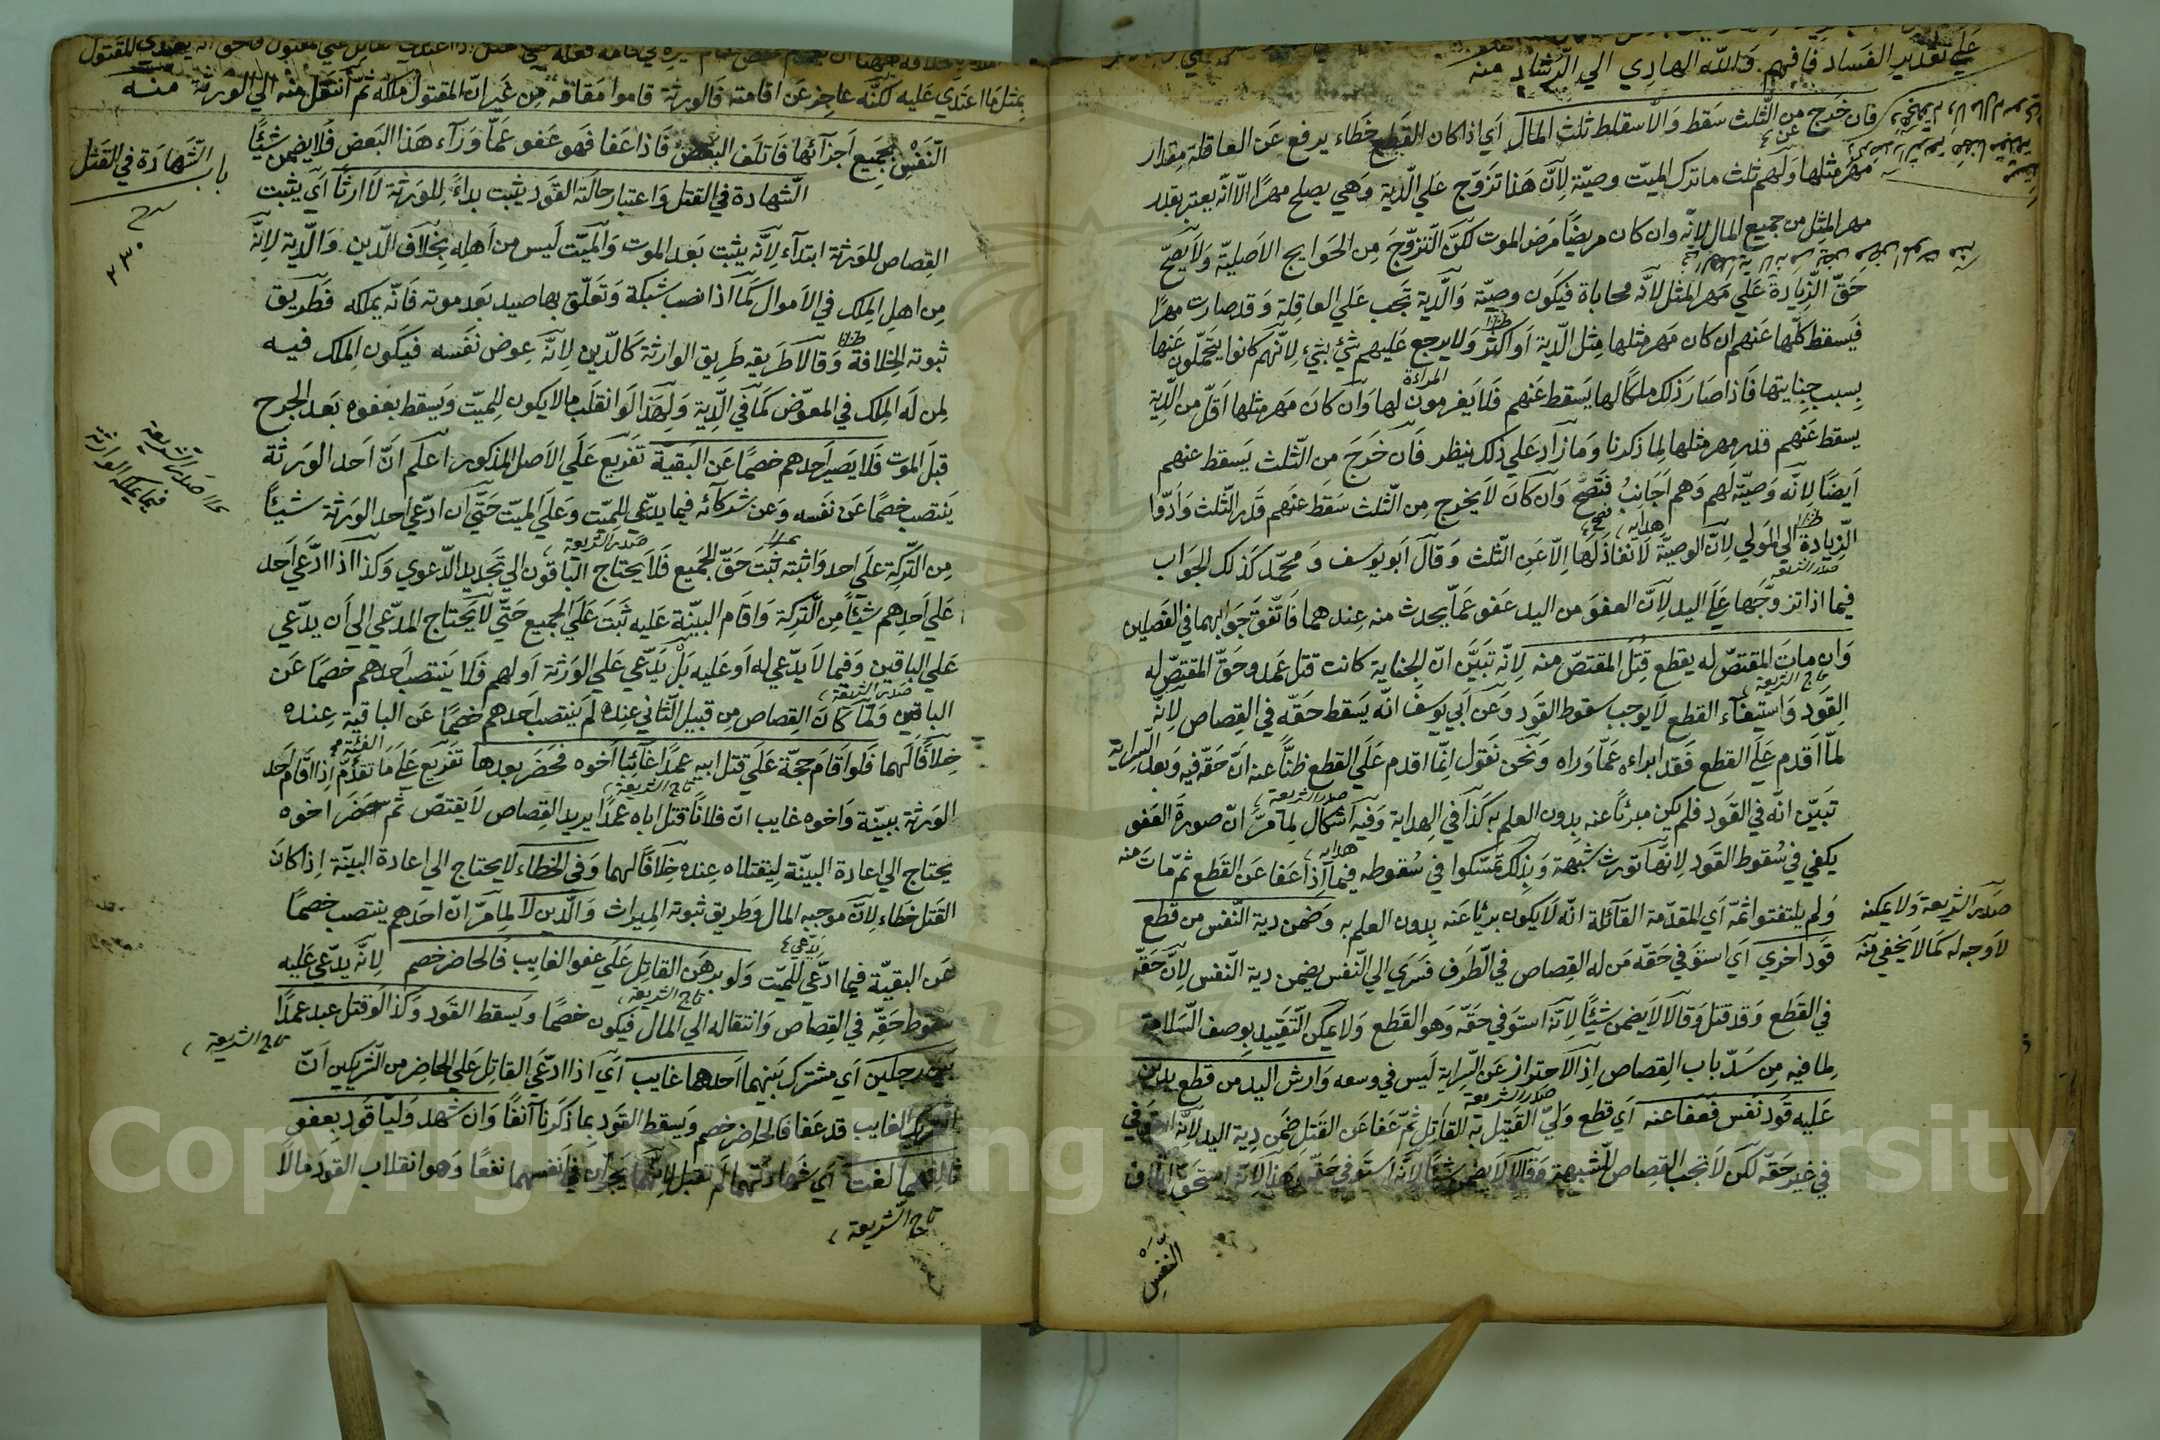 علي تقدير الفساد فافهم والله الهادي الي الرشاد منه
فان خرج من الثلث سقط والا سقط ثلث المال اي اذا كان القطع خطاء يرفع عن العاقلة مقدار
مهر مثلها ولهم ثلث ما ترك الميت وصية لان هذا تزوج علي الدية وهي يصلح مهرا الا انه يعتبر بقدر
مهر المثل من جميع المال لانه وان كان مريضا مرض الموت لكن التزوج من الحوايج الاصلية ولا يصح
حق الزيادة علي مهر المثل لانه محاباة فيكون وصية والدية تجب علي العاقلة وقد صارت مهرا
فيسقط كلها عنهم ان كان مهر مثلها مثل الدية او اكثر ولا يرجع عليهم شئ بشئ لانهم كانوا يتحملون عنها
بسبب جنايتها فاذا صار ذلك ملكا لها يسقط عنهم فلا يغرمون لها وان كان مهر مثلها اقل من الدية
المراءة
يسقط عنهم قدر مهر مثلها لما ذكرنا وما زاد علي ذلك ينظر فان خرج من الثلث يسقط عنهم
ايضا لانه وصية لهم وهم اجانب فتصح وان كان لا يخرج من الثلث سقط عنهم قدر الثلث وادوا
الزيادة الي المولي لان الوصية لا نفاذ لها الا عن الثلث وقال ابو يوسف ومحمد كذلك الجواب
هدايه
صدر الشريعة
فيما اذا تزوجها علي اليد لان العفو من اليد عفو عما يحدث منه عندهما فاتفق جوابهما في الفصلين
وان مات المقتص له يقطع قتل المقتص منه لانه تبين ان الجناية كانت قتل عمد وحق المقتص له
تاج الشريعة
القود واستيفاء القطع لا يوجب سقوط القود وعن ابي يوسف انه يسقط حقه في القصاص لانه
لما اقدم علي القطع فقد ابراءه عما وراه ونحن نقول انما اقدم علي القطع ظنا عنه ان حقه فيه وبعد السراية
تبين انه في القود فلم يكن مبرئا عنه بدون العلم به كذا في الهداية وفيه اشكال لما مر ان صورة العفو
صدر الشريعة
يكفي في سقوط القود لانها تورث شبهة وبذلك تمسكوا في سقوطه فيما اذا عفا عن القطع ثم مات منه
هدايه
ولم يلتفتوا ثمة اي المقدمة القائلة انه لا يكون بريا عنه بدون العلم به وضمن دية النفس من قطع
صدر الشريعة ولا يمكنه
قود اخري اي استوفي حقه من له القصاص في الطرف فسري الي النفس يضمن دية النفس لان حقه
لا وجه له كما لا يخفي منه
في القطع وقد قتل وقالا لا يضمن شيئا لانه استوفي حقه وهو القطع ولا يمكن التقييد بوصف السلامة
لما فيه من سد باب القصاص اذ الاحتراز عن السراية ليس في وسعه وارش اليد من قطع يد من
صدر الشريعة
عليه قود نفس فعفا عنه اي قطع ولي القتيل به القاتل ثم عفا عن القتل ضمن دية اليد لانه استوفي
في غير حقه لكن لا تجب القصاص للشبهة وقالا لا يضمن شيئا لانه استوفي حقه وهذا لانه استحق اتلاف
النفس
بمثل ما اعتدي عليه لكنه عاجز عن اقامته فالورثة قاموا مقامه من غير ان المقتول ملكه ثم انتقل منه الي الورثة منه
النفس بجميع اجزائها فاتلف البعض فاذا عفا فهو عفو عما وراء هذا البعض فلا يضمن شيئا
باب الشهادة في القتل
الشهادة في القتل واعتبار حالته القود يثبت بداء للورثة لا ارثا اي يثبت
٢٣٠
القصاص للورثة ابتداء لانه يثبت بعد الموت والميت ليس من اهله بخلاف الدين والدية لانه
من اهل الملك في الاموال كما اذا نصب شبكة وتعلق بها صيد بعد موته فانه يملكه فطريق
ثبوته الخلافة وقالا طريقه طريق الوارثة كالدين لانه عوض نفسه فيكون الملك فيه
لمن له الملك في المعوض كما في الدية ولهذا لو انقلب مالا يكون للميت ويسقط بعفوه بعد الجرح
قبل الموت فلا يصير احدهم خصما عن البقية تفريع علي الاصل المذكور اعلم ان احد الورثة
ينتصب خصما عن نفسه وعن شركائه فيما يدعي للميت وعلي الميت حتي ان ادعي احد الورثة شيئا
صدر الشريعة
من التركة علي احد واثبته ثبت حق الجميع فلا يحتاج الباقون الي تجديد الدعوي وكذا اذا ادعي احد
علي احدهم شيئا من التركة واقام البينة عليه ثبت علي الجميع حتي لا يحتاج المدعي الي ان يدعي
علي الباقين وفيما لا يدعي له او عليه بل يدعي علي الورثة او لهم فلا ينتصب احدهم خصما عن
صدر الشريعة
الباقين ولما كان القصاص من قبيل الثاني عنده لم ينتصب احدهم خصما عن الباقية عنده
خلافا لهما فلو اقام حجة علي قتل ابيه عمدا غائبا اخوه فحضر يعدها تفريع علي ما تقدم اذا اقام احد
تاج الشريعة
الورثة ببينة واخوه غايب ان فلانا قتل اباه عمدا يريد القصاص لا يقتص ثم حضر اخوه
يحتاج الي اعادة البينة ليقتلاه عنده خلافا لهما وفي الخطاء لا يحتاج الي اعادة البينة اذا كان
القتل خطاء لان موجبه المال وطريق ثبوته الميراث والدين لا لما مر ان احدهم ينتصب خصما
عن البقية فيما ادعي للميت ولو برهن القاتل علي عفو الغايب فالحاضر خصم لانه يدعي عليه
تاج الشريعة
سقوط حقه في القصاص وانتقاله الي المال فيكون خصما ويسقط القود وكذا لو قتل عبد عمدا
تاج الشريعة
بين رجلين اي مشترك بينهما احدهما غايب اي اذا ادعي القاتل علي الحاضر من الشريكين ان
الشريك الغايب قد عفا فالحاضر خصم ويسقط القود بما ذكرنا آنفا وان شهد وليا قود بعفو
ثالثهما لغت اي شهادتهما لم تقبل لانهما يجران في انفسهما نفعا وهو انقلاب القود مالا
تاج الشريعة
Copyright © King Saud University